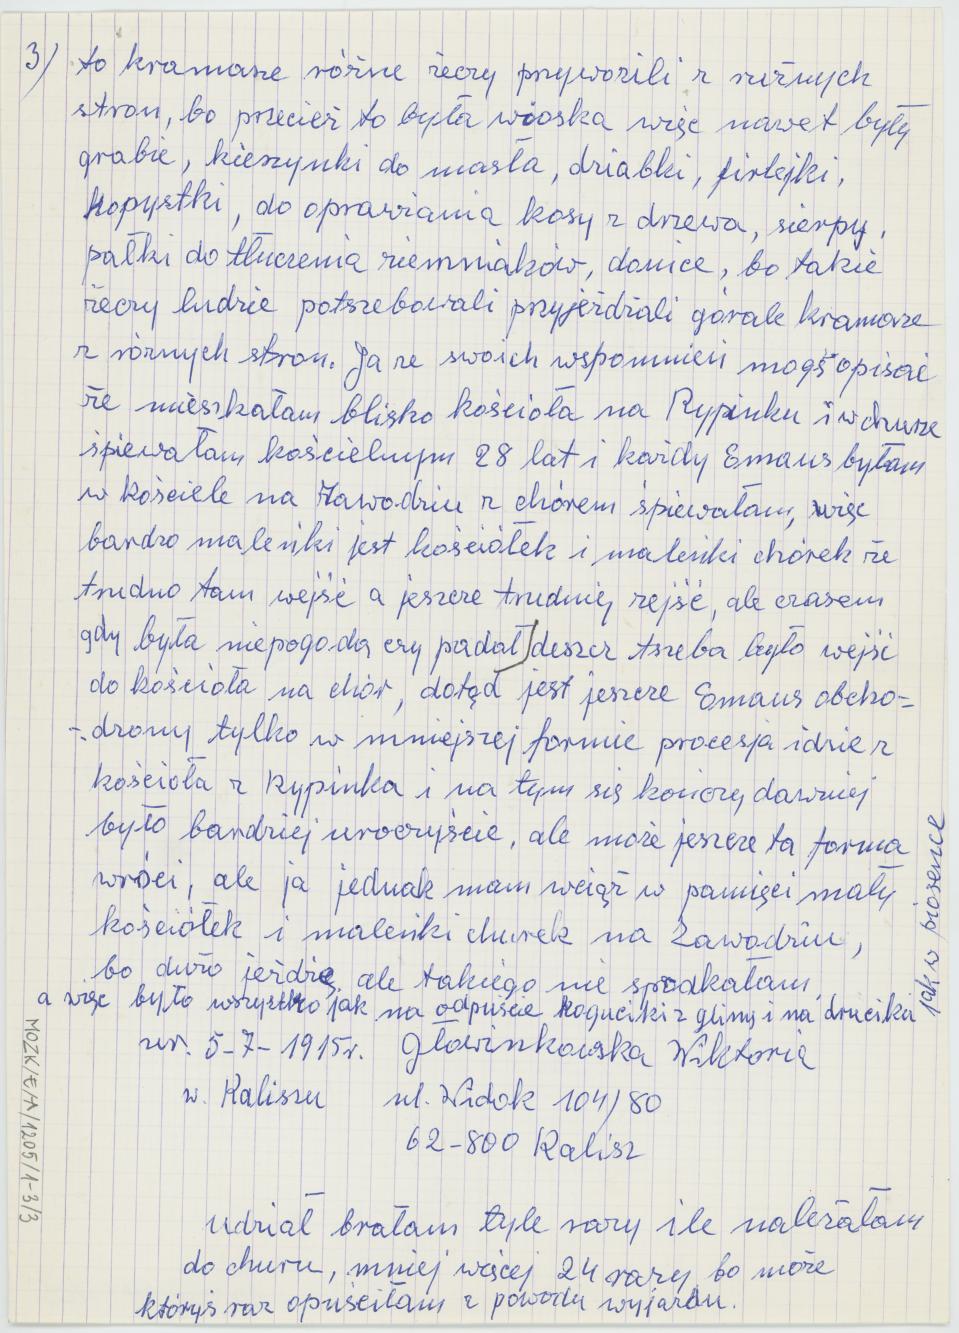 3) to kramaże różne żeczy przywozili z rużnych
stron, bo przecież to była wioska więc nawet były
grabie, kieszynki do masła, dziabki, firlejki,
kopystki, do oprawiania kosy z drzewa, sierpy,
pałki do tłuczenia ziemniaków, donice, bo takie
żeczy ludzie potszebowali przyjeżdżali górale kramaże
z róznych stron. Ja ze swoich wspomnień mogę opisać
że mieszkałam blisko kościoła na Rypinku i w churze
śpiewałam kościelnym 28 lat i każdy Emaus byłam
w kościele na Zawodziu z chórem śpiewałam, więc
bardzo maleńki jest kościółek i maleńki chórek że
trudno tam wejść a jeszcze trudniej zejść, ale czasem
gdy była niepogoda czy padał deszcz tszeba było wejść
do kościoła na chór, dotąd jest jeszcze Emaus obcho=
-dzony tylko w mniejszej formie procesja idzie z
kościoła z Rypinka i na tym się kończy dawniej
było bardziej uroczyście, ale może jeszcze ta forma
wróci, ale ja jednak mam wciąż w pamięci mały
kościółek i maleńki churek na Zawodziu,
bo dużo jeżdżę, ale takiego nie spodkałam,
a więc było wszystko jak na odpuście koguciki z gliny i na drucika
jak w piosence
ur. 5-7-1915r. Głowinkowska Wiktoria
w. Kaliszu ul. Widok 104/80
62-800 Kalisz
MOZK/E/M/1205/1-3/3
udział brałam tyle razy ile należałam
do churu, mniej więcej 24 razy, bo może
któryś raz opuściłam z powodu wyjazdu.